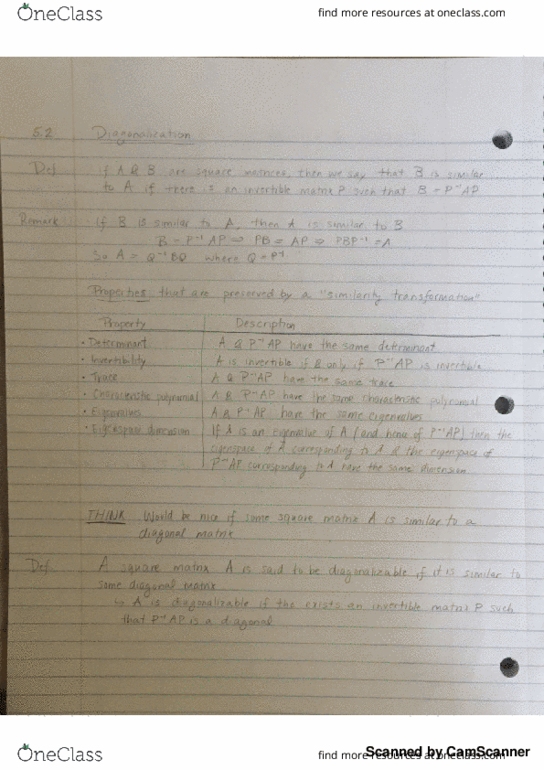 OneClass
find more resources at oneclass.com
5.2 Diagonalization
Def If A & B are square matrices, then we say that B is similar
to A if there is an invertible matrix P such that B = P⁻¹AP
Remark If B is similar to A, then A is similar to B
B = P⁻¹AP ⇒ PB = AP ⇒ PBP⁻¹ = A
So A = Q⁻¹BQ where Q = P⁻¹
Properties that are preserved by a "similarity transformation"
Property Description
• Determinant A & P⁻¹AP have the same determinant
• Invertibility A is invertible if & only if P⁻¹AP is invertible
• Trace A & P⁻¹AP have the same trace
• Characteristic polynomial A & P⁻¹AP have the same characteristic polynomial
• Eigenvalues A & P⁻¹AP have the same eigenvalues
• Eigenspace dimension If λ is an eigenvalue of A (and hence of P⁻¹AP) then the
eigenspace of A corresponding to λ & the eigenspace of
P⁻¹AP corresponding to λ have the same dimension
THINK Would be nice if some square matrix A is similar to a
diagonal matrix
Def A square matrix A is said to be diagonalizable if it is similar to
some diagonal matrix
↳ A is diagonalizable if the exists an invertible matrix P such
that P⁻¹AP is a diagonal
OneClass
find more resources at oneclass.com
Scanned by CamScanner